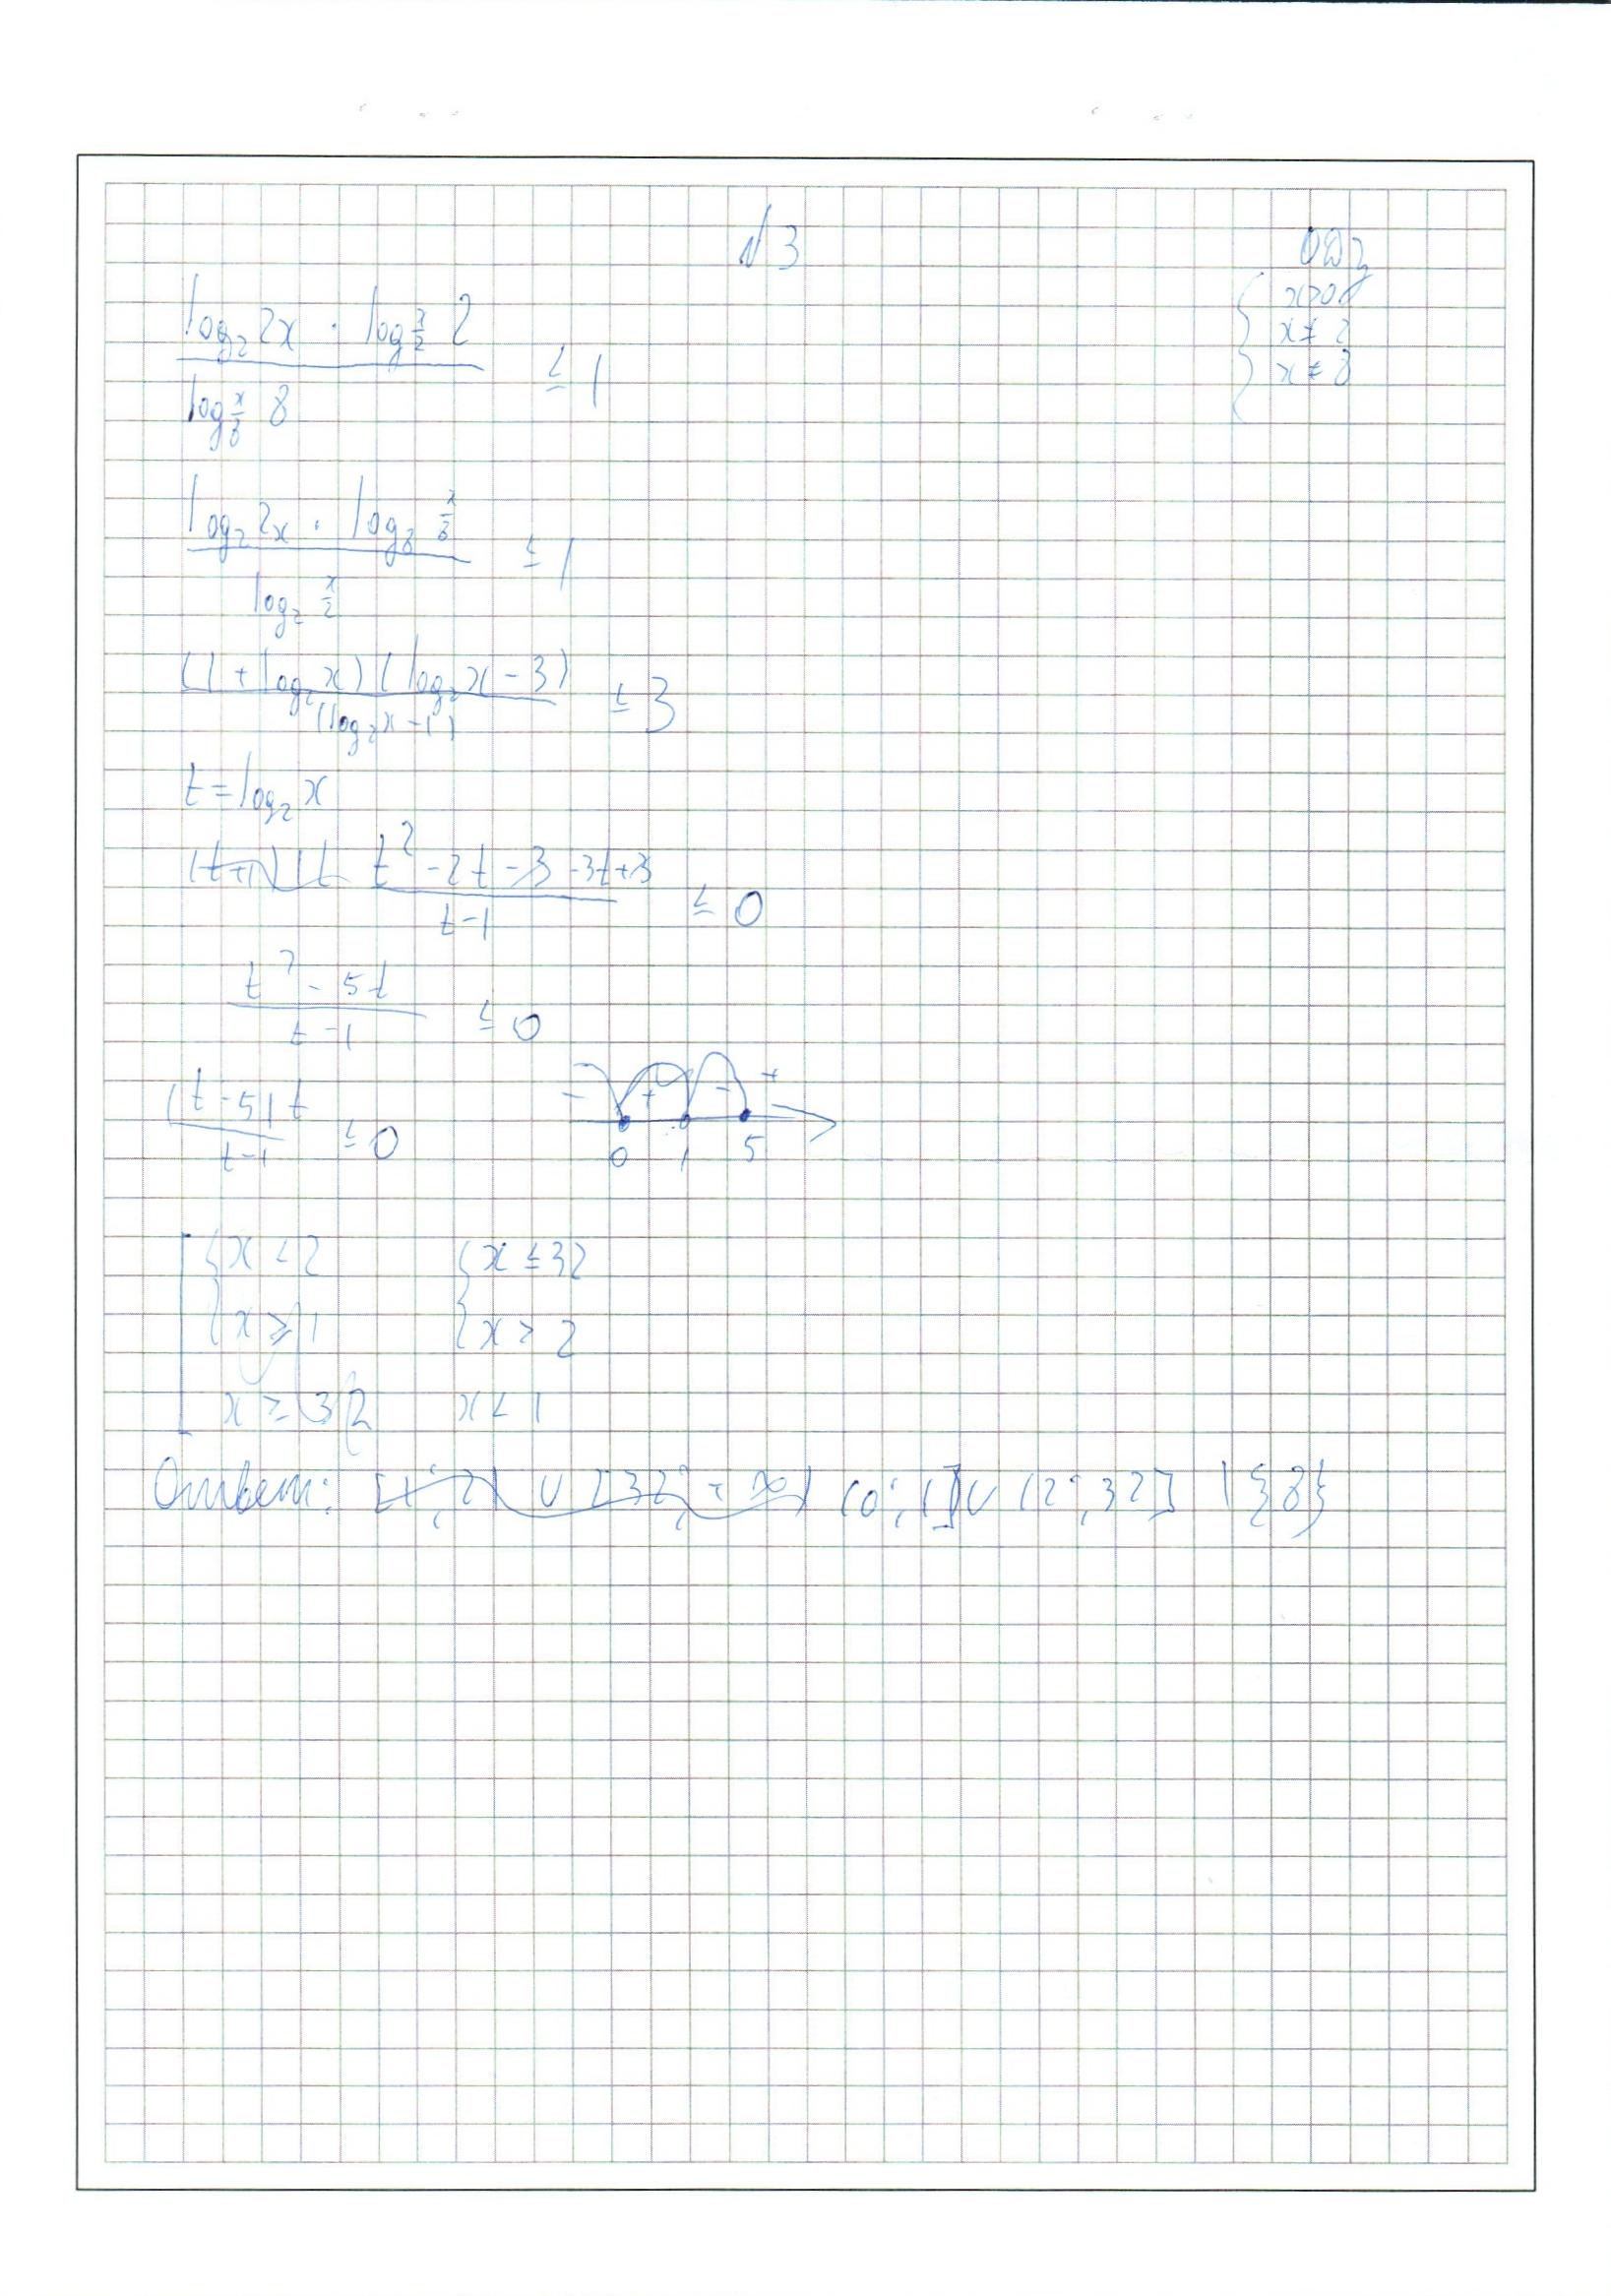 №3
ОДЗ
x>0
x≠2
x≠8
log₂2x · log_{x/2} 2 / log_{x/8} 8 ≤ 1
log₂2x · log₈ x/8 / log₂ x/2 ≤ 1
(1 + log₂x)(log₂x - 3) / (log₂x - 1) ≤ 3
t = log₂x
t² - 2t - 3 - 3t + 3 / t-1 ≤ 0
t² - 5t / t-1 ≤ 0
(t-5)t / t-1 ≤ 0
- + - +
0 1 5
{x < 2 {x ≤ 32
{x ≥ 1 {x > 2
x ≥ 32 x < 1
Ответ: [1; 2) ∪ [32; +∞) (0; 1] ∪ (2; 32] \ {8}